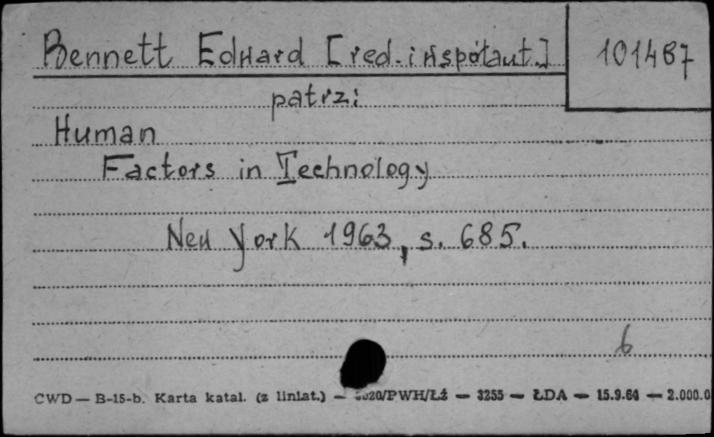 Bennett Edward [red. i współaut.] 101487
patrz:
Human
Factors in Technology
New York 1963, s. 685.
6
CWD — B-15-b. Karta katal. (z liniat.) — 2020/PWH/Łż — 3255 — ŁDA — 15.9.64 — 2.000.0